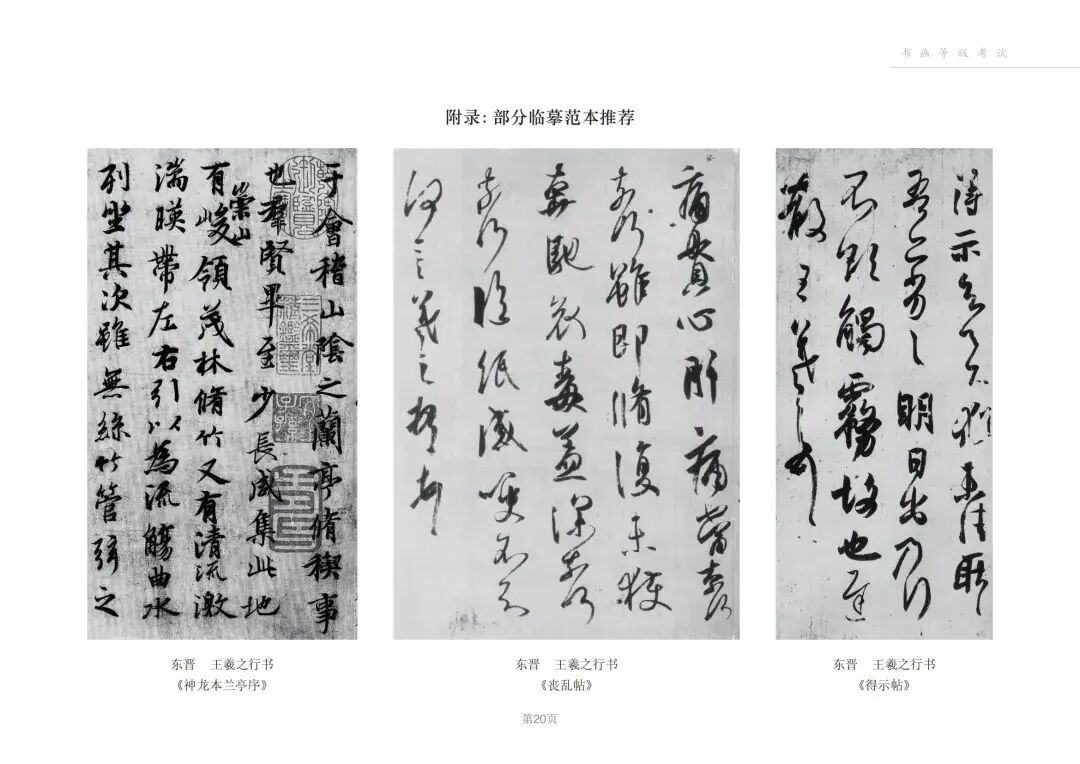 书画等级考试
附录：部分临摹范本推荐
于會稽山陰之蘭亭脩稧事
也群賢畢至少長咸集此地
有崇山峻領茂林脩竹又有清流激
湍暎帶左右引以為流觴曲水
列坐其次雖無絲竹管弦之
痛貫心肝痛當奈何
奈何雖即脩復未獲
奔馳哀毒益深奈何
奈何臨紙感哽不知
何言羲之頓首頓首
得示知足下猶未佳耿耿
吾亦劣劣明日出乃行
不欲觸霧故也遲
散王羲之頓首
东晋 王羲之行书
《神龙本兰亭序》
东晋 王羲之行书
《丧乱帖》
东晋 王羲之行书
《得示帖》
第20页